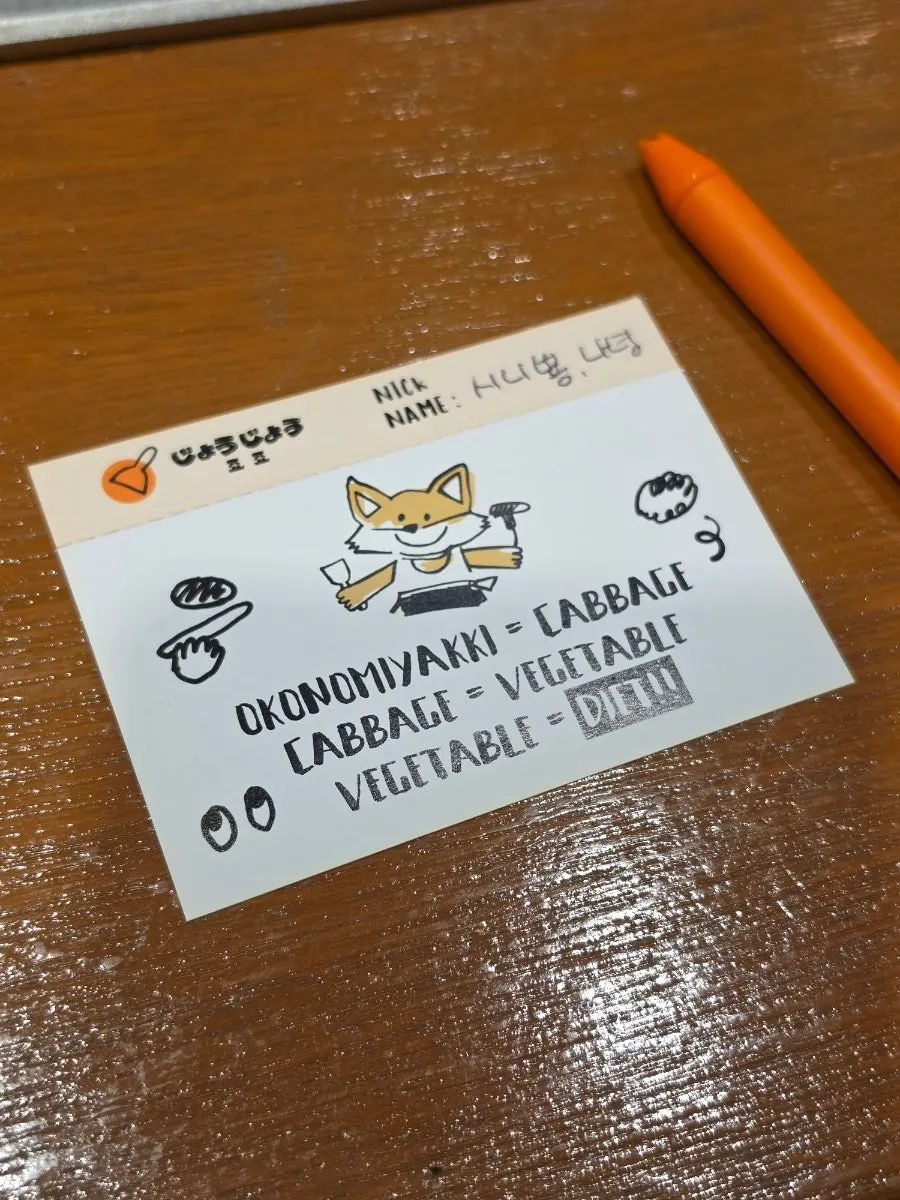 じょうじょう
죠 죠
NICK
NAME: 시니뿅, 나덩
OKONOMIYAKKI = CABBAGE
CABBAGE = VEGETABLE
VEGETABLE = DIET!!